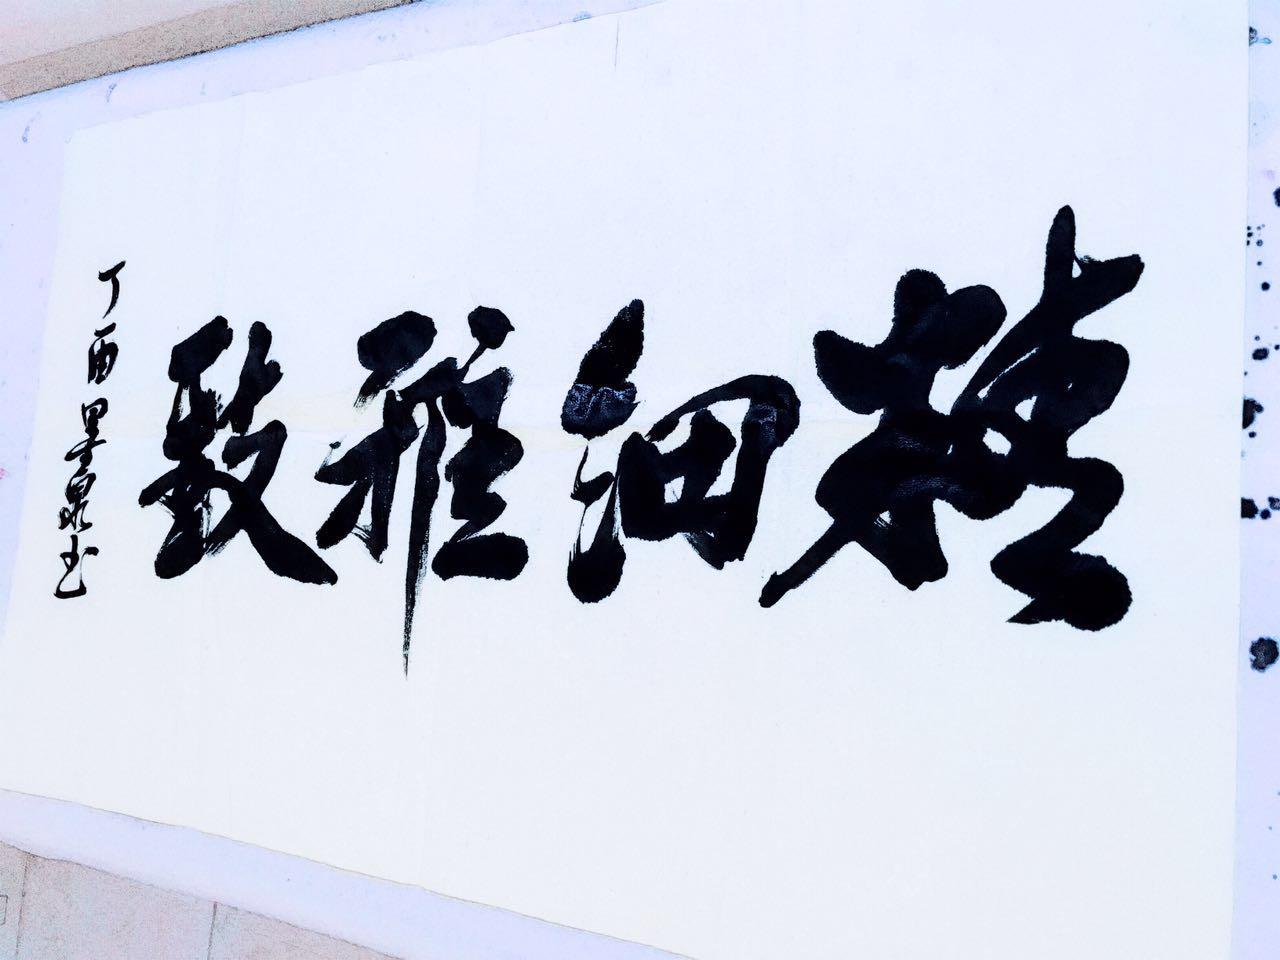 精细雅致
丁酉墨泉书